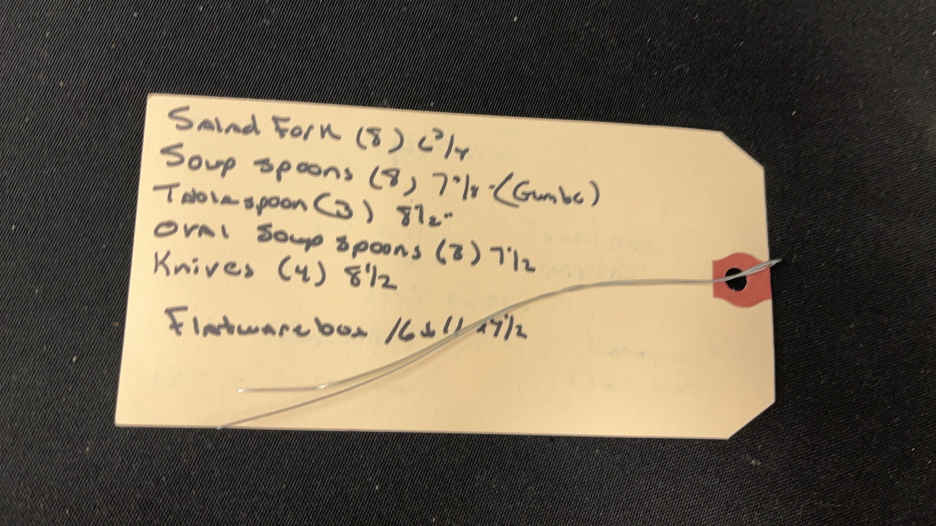 Salad Fork (8) 6 3/4
Soup spoons (8) 7 1/8" (Gumbo)
Tablespoon (3) 8 1/2"
Oval soup spoons (8) 7 1/2
Knives (4) 8 1/2
Flatware box 16 x 11 x 4 1/2